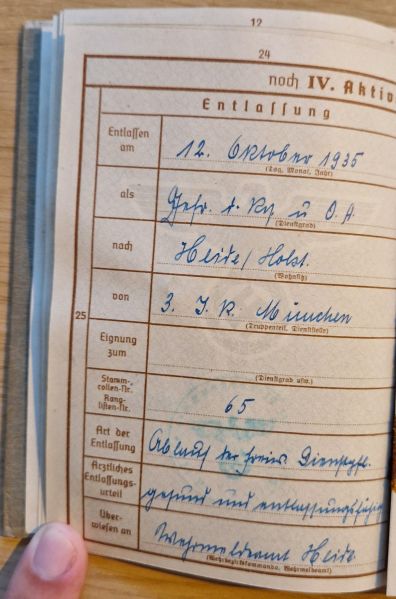 12
24
noch IV. Aktiv
Entlassung
Entlassen am
12. Oktober 1935
(Tag, Monat, Jahr)
als
Gefr. d. Rs. u O.A.
(Dienstgrad)
nach
Heide/Holst.
(Wohnsitz)
25
von
3. J.R. München
(Truppenteil, Dienststelle)
Eignung zum
(Dienstgrad usw.)
Stamm-
rollen-Nr.
Rang-
listen-Nr.
65
Art der
Entlassung
Ablauf der freiw. Dienstpfl.
Ärztliches
Entlassungs-
urteil
gesund und entlassungsfähig
Über-
wiesen an
Wehrmeldeamt Heide
(Wehrbezirkskommando, Wehrmeldeamt)